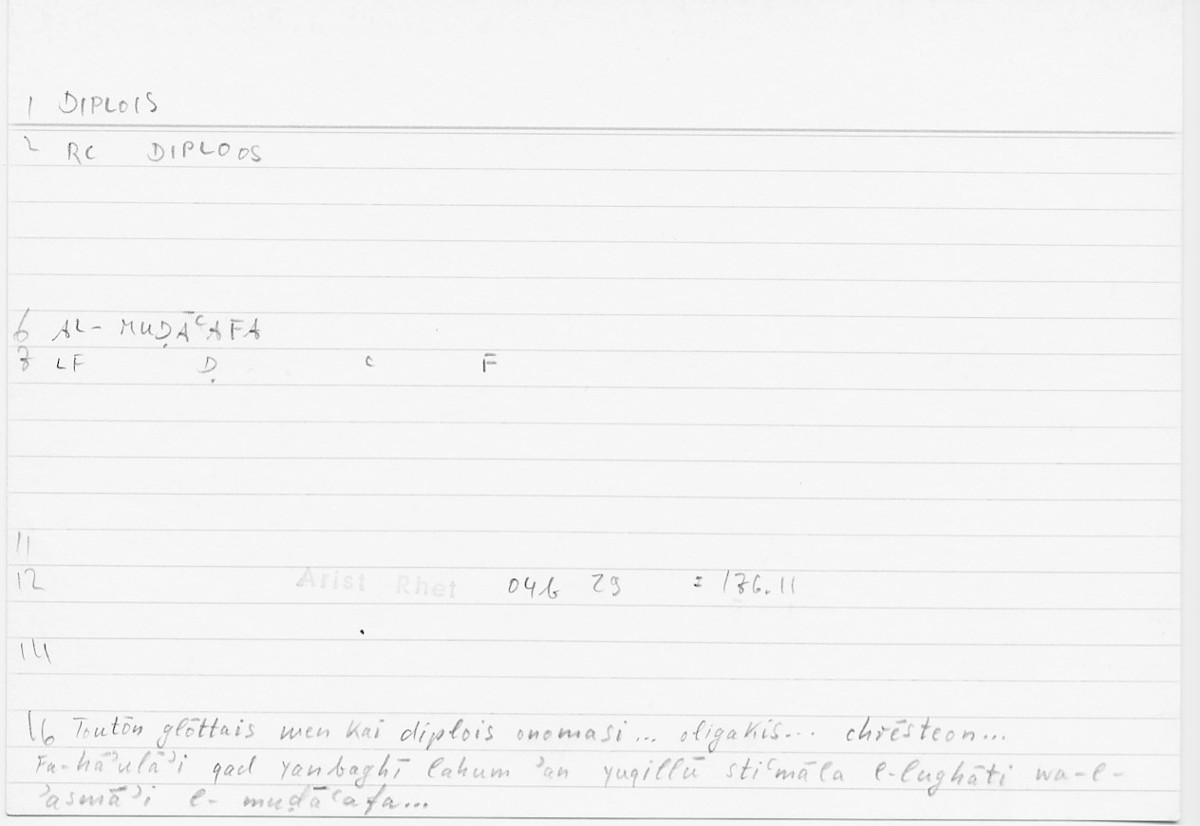 1 DIPLOIS
2 RC DIPLOOS
6 AL- MUḌĀʿAFA
7 LF Ḍ ʿ F
11
12 Arist Rhet 04b 29 = 176.11
14
16 Toutōn glōttais men kai diplois onomasi... oligakis... chrēsteon...
Fa-hāʾulāʾi qad yanbaghī lahum ʾan yuqillū stiʿmāla l-lughāti wa-l-
ʾasmāʾi l- muḍāʿafa...